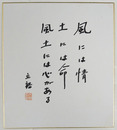 風には情
土には命
風土には心がある